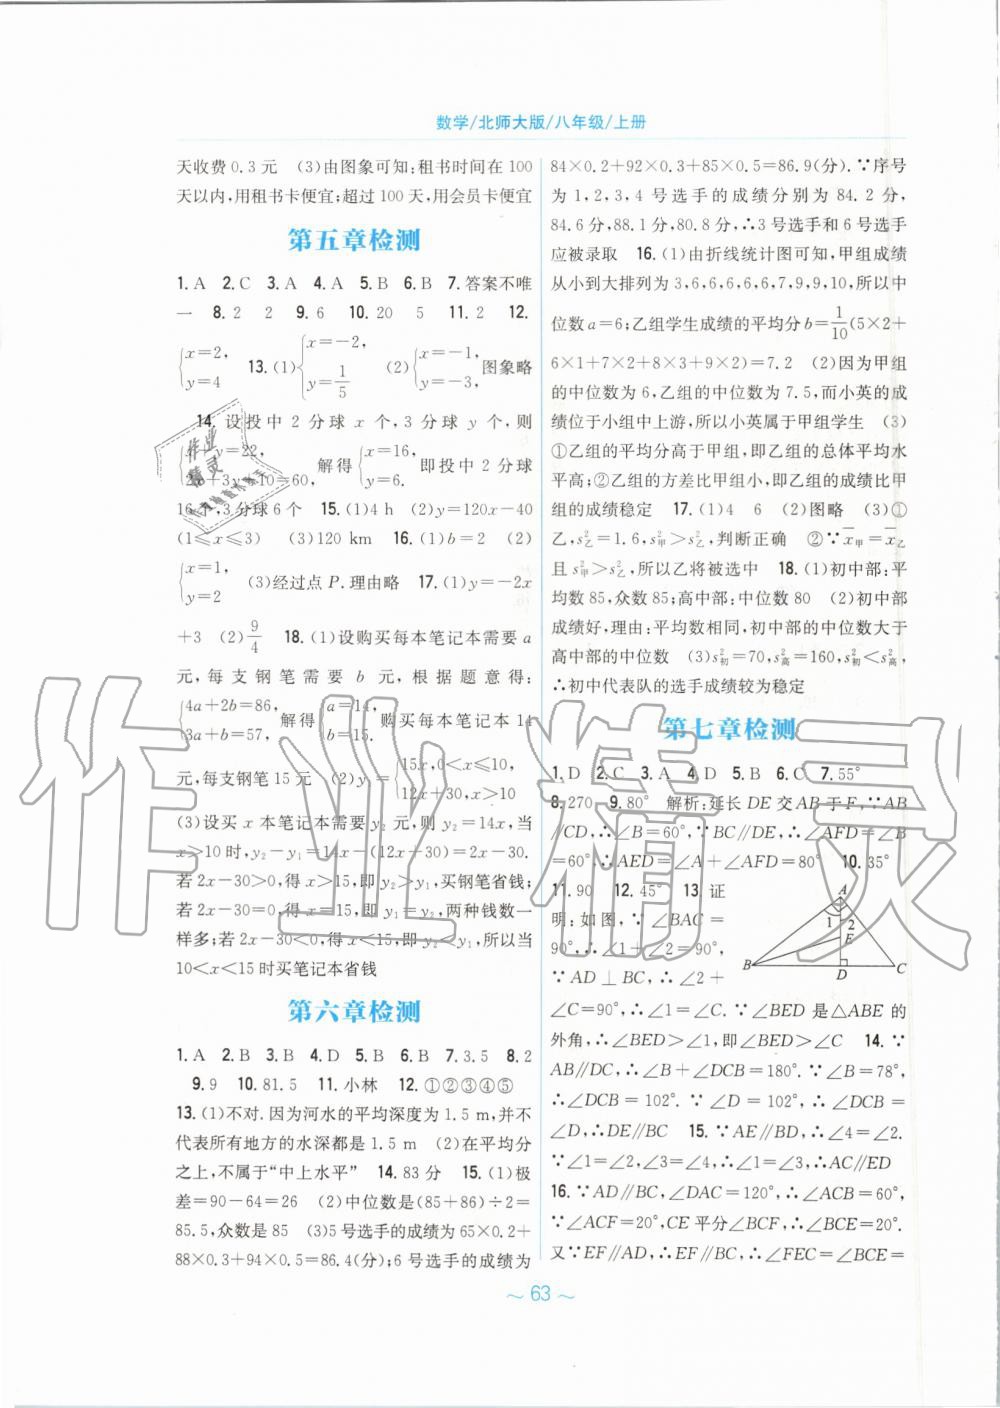 数学/北师大版/八年级/上册
天收费0.3元　(3)由图象可知:租书时间在100
天以内,用租书卡便宜;超过100天,用会员卡便宜
第五章检测
1. A　2. C　3. A　4. A　5. B　6. B　7. 答案不唯
一　8. 2　2　9. 6　10. 20　5　11. 2　12.
{x=2, y=4　13. (1){x=-2, y=1/5　(2){x=-1, y=-3, 图象略
14. 设投中2分球x个,3分球y个,则
{x+y=22, 2x+3y+10=60, 解得{x=16, y=6. 即投中2分球
16个,3分球6个　15. (1)4 h　(2)y=120x-40
(1≤x≤3)　(3)120 km　16. (1)b=2　(2)
{x=1, y=2　(3)经过点P.理由略　17. (1)y=-2x
+3　(2)9/4　18. (1)设购买每本笔记本需要a
元,每支钢笔需要b元,根据题意得:
{4a+2b=86, 3a+b=57, 解得{a=14, b=15. 购买每本笔记本14
元,每支钢笔15元　(2)y₁={15x,0<x≤10, 12x+30,x>10
(3)设买x本笔记本需要y₂元,则y₂=14x,当
x>10时,y₂-y₁=14x-(12x+30)=2x-30.
若2x-30>0,得x>15,即y₂>y₁,买钢笔省钱;
若2x-30=0,得x=15,即y₂=y₁,两种钱数一
样多;若2x-30<0,得x<15,即y₂<y₁,所以当
10<x<15时买笔记本省钱
第六章检测
1. A　2. B　3. B　4. D　5. B　6. B　7. 3.5　8. 2
9. 9　10. 81.5　11. 小林　12. ①②③④⑤
13. (1)不对.因为河水的平均深度为1.5 m,并不
代表所有地方的水深都是1.5 m　(2)在平均分
之上,不属于“中上水平”　14. 83分　15. (1)极
差=90-64=26　(2)中位数是(85+86)÷2=
85.5,众数是85　(3)5号选手的成绩为65×0.2+
88×0.3+94×0.5=86.4(分);6号选手的成绩为
84×0.2+92×0.3+85×0.5=86.9(分).∵序号
为1,2,3,4号选手的成绩分别为84.2分,
84.6分,88.1分,80.8分,∴3号选手和6号选手
应被录取　16. (1)由折线统计图可知,甲组成绩
从小到大排列为3,6,6,6,6,6,7,9,9,10,所以中
位数a=6;乙组学生成绩的平均分b=1/10(5×2+
6×1+7×2+8×3+9×2)=7.2　(2)因为甲组
的中位数为6,乙组的中位数为7.5,而小英的成
绩位于小组中上游,所以小英属于甲组学生　(3)
①乙组的平均分高于甲组,即乙组的总体平均水
平高;②乙组的方差比甲组小,即乙组的成绩比甲
组的成绩稳定　17. (1)4　6　(2)图略　(3)①
乙,s²乙=1.6,s²甲>s²乙,判断正确　②∵x̄甲=x̄乙
且s²甲>s²乙,所以乙将被选中　18. (1)初中部:平
均数85,众数85;高中部:中位数80　(2)初中部
成绩好,理由:平均数相同,初中部的中位数大于
高中部的中位数　(3)s²初=70,s²高=160,s²初<s²高,
∴初中代表队的选手成绩较为稳定
第七章检测
1. D　2. C　3. A　4. D　5. B　6. C　7. 55°
8. 270　9. 80°　解析:延长DE交AB于F,∵AB
∥CD,∴∠B=60°,∵BC∥DE,∴∠AFD=∠B
=60°,∴∠AED=∠A+∠AFD=80°　10. 35°
11. 90　12. 45°　13. 证
明:如图,∵∠BAC=
90°,∴∠1+∠2=90°,
∵AD⊥BC,∴∠2+
∠C=90°,∴∠1=∠C.∵∠BED是△ABE的
外角,∴∠BED>∠1,即∠BED>∠C　14. ∵
AB∥DC,∴∠B+∠DCB=180°.∵∠B=78°,
∴∠DCB=102°.∵∠D=102°,∴∠DCB=
∠D,∴DE∥BC　15. ∵AE∥BD,∴∠4=∠2.
∵∠1=∠2,∠3=∠4,∴∠1=∠3,∴AC∥ED
16. ∵AD∥BC,∠DAC=120°,∴∠ACB=60°,
∵∠ACF=20°,CE平分∠BCF,∴∠BCE=20°.
又∵EF∥AD,∴EF∥BC,∴∠FEC=∠BCE=
A
1
2
E
B
D
C
~ 63 ~
作业精灵
作业
精灵